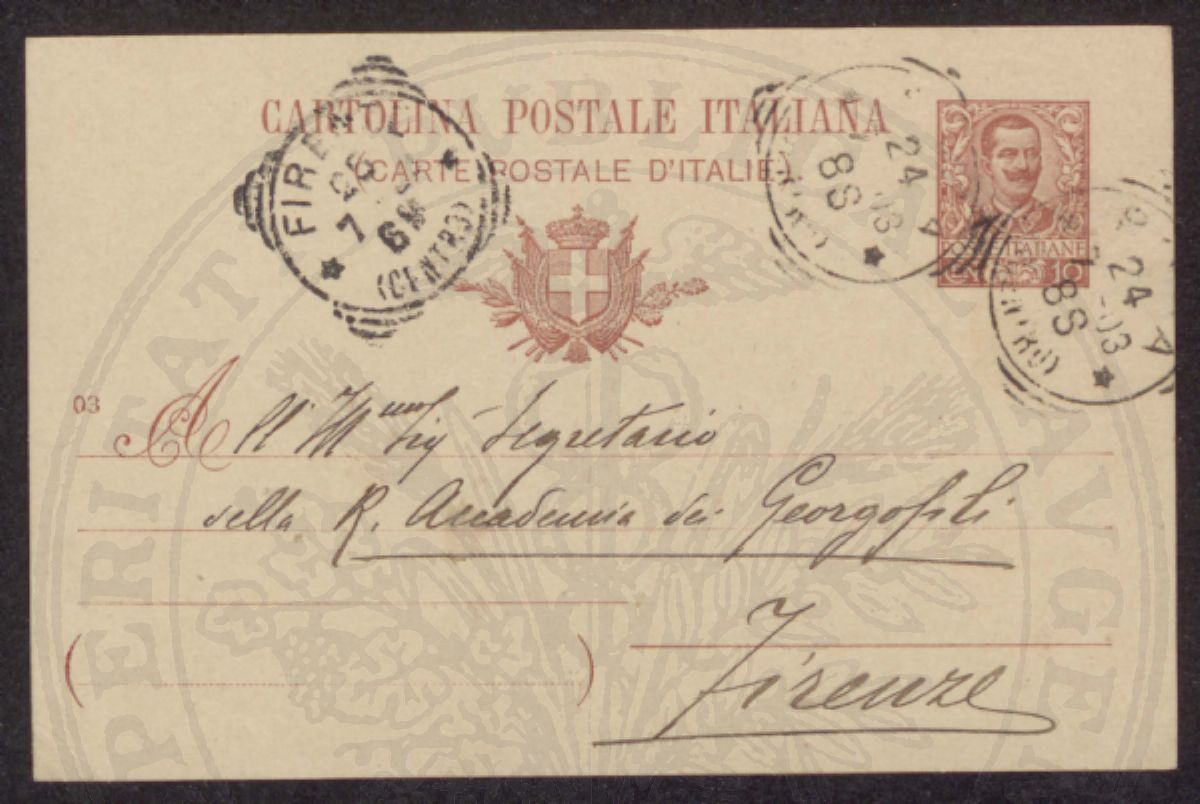 CARTOLINA POSTALE ITALIANA
(CARTE POSTALE D'ITALIE).
FIRENZE
7
6M
(CENTRO)
24
03
8S
POSTE ITALIANE
10
24
-03
8S
03
All' Ill.mo Sig Segretario
della R. Accademia dei Georgofili
Firenze
PROSPERITATI PUBLICAE AVGE